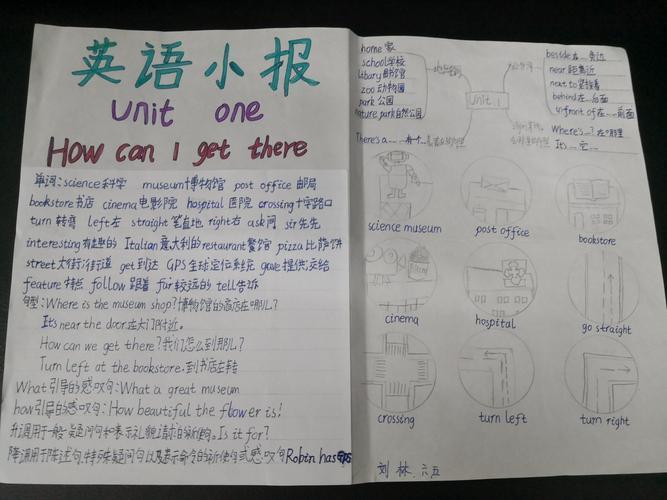 英语小报
Unit one
How can I get there
单词:science科学 museum博物馆 post office 邮局
bookstore书店 cinema电影院 hospital 医院 crossing十字路口
turn 转弯 left左 straight笔直地 right右 ask问 sir先生
interesting有趣的 Italian意大利的restaurant餐馆 pizza比萨饼
street大街;街道 get到达 GPS全球定位系统 gave提供;交给
feature特点 follow跟着 far较远的 tell告诉
句型:Where is the museum shop?博物馆的商店在哪儿?
It's near the door.在大门附近。
How can we get there?我们怎么到那儿?
Turn left at the bookstore.到书店左转
What引导的感叹句:What a great museum
how引导的感叹句:How beautiful the flower is!
升调用于一般疑问句和表示礼貌请求的祈使句。Is it for?
降调用于陈述句,特殊疑问句以及表示命令的祈使句或感叹句 Robin has GPS
home 家
school学校
libary图书馆
zoo 动物园
park 公园
nature park自然公园
There's a ... 有个...
Unit 1
beside在...旁边
near 距离近
next to 紧挨着
behind在...后面
in front of在...前面
Where's ...?在哪里
It's ...它...
science museum
post office
bookstore
cinema
hospital
go straight
crossing
turn left
turn right
刘林 六五